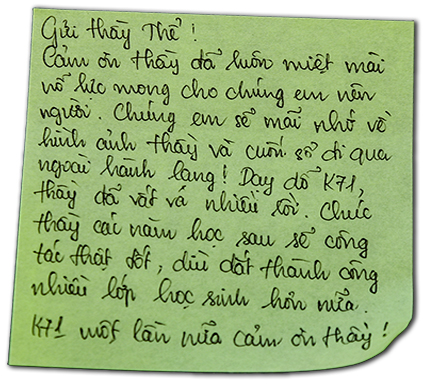 Gửi thầy Thể !
Cảm ơn thầy đã luôn miệt mài
nỗ lực mong cho chúng em nên
người. Chúng em sẽ mãi nhớ về
hình ảnh thầy và cuốn sổ đi qua
ngoài hành lang! Dạy dỗ K71,
thầy đã vất vả nhiều rồi. Chúc
thầy các năm học sau sẽ công
tác thật tốt, dìu dắt thành công
nhiều lớp học sinh hơn nữa.
K71 một lần nữa cảm ơn thầy!